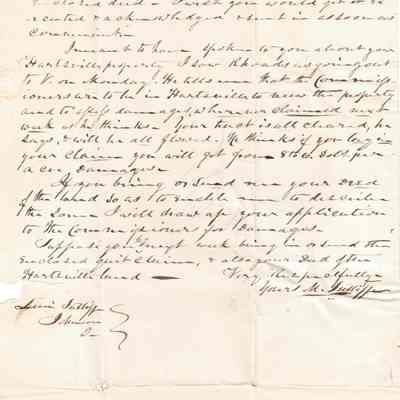 enclosed deed - I wish you would get it ex
ecuted & acknowledged & sent in as soon as
convenient
I meant to have spoken to you about your
Hartsville property I saw Rhoads as going out
to V. on Monday. He tells me that the Commiss
ioners are to be in Hartsville to view the property
and to assess damages, where ever claimed next
week as he thinks. Your tract is all cleared, he
says, & will be all flowed. He thinks if you lay in
your claim you will get from 8 to Dolls per
acre Damages
If you bring or send me your Deed
of the land so as to enable me to describe
the same I will draw up your application
to the Commissioners for Damages.
Suppose you next week bring in or send the
enclosed quit Claim, & also your Deed of the
Hartsville land
Very Respectfully
Yours M. Sutliff
Levi Sutliff
Johnson
O